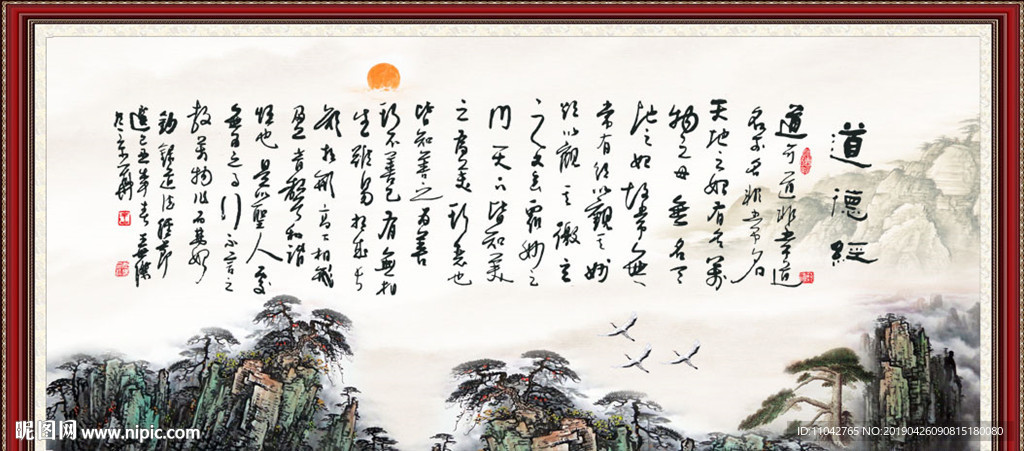 道德經
道可道非常道
名可名非常名
天地之始有名萬
物之母無名天
地之始故常無
常有欲以觀其妙
欲以觀其徼玄
之又玄眾妙之
門天下皆知美
之為美斯惡也
皆知善之為善
斯不善已有無相
生難易相成長
相形高下相
盈音聲相和
恆也是以聖人處
無為之事行不言之
教萬物作而弗始
錄道德經節
選己丑年春
於京華
昵图网 www.nipic.com
ID:11042765 NO:20190426090815180080